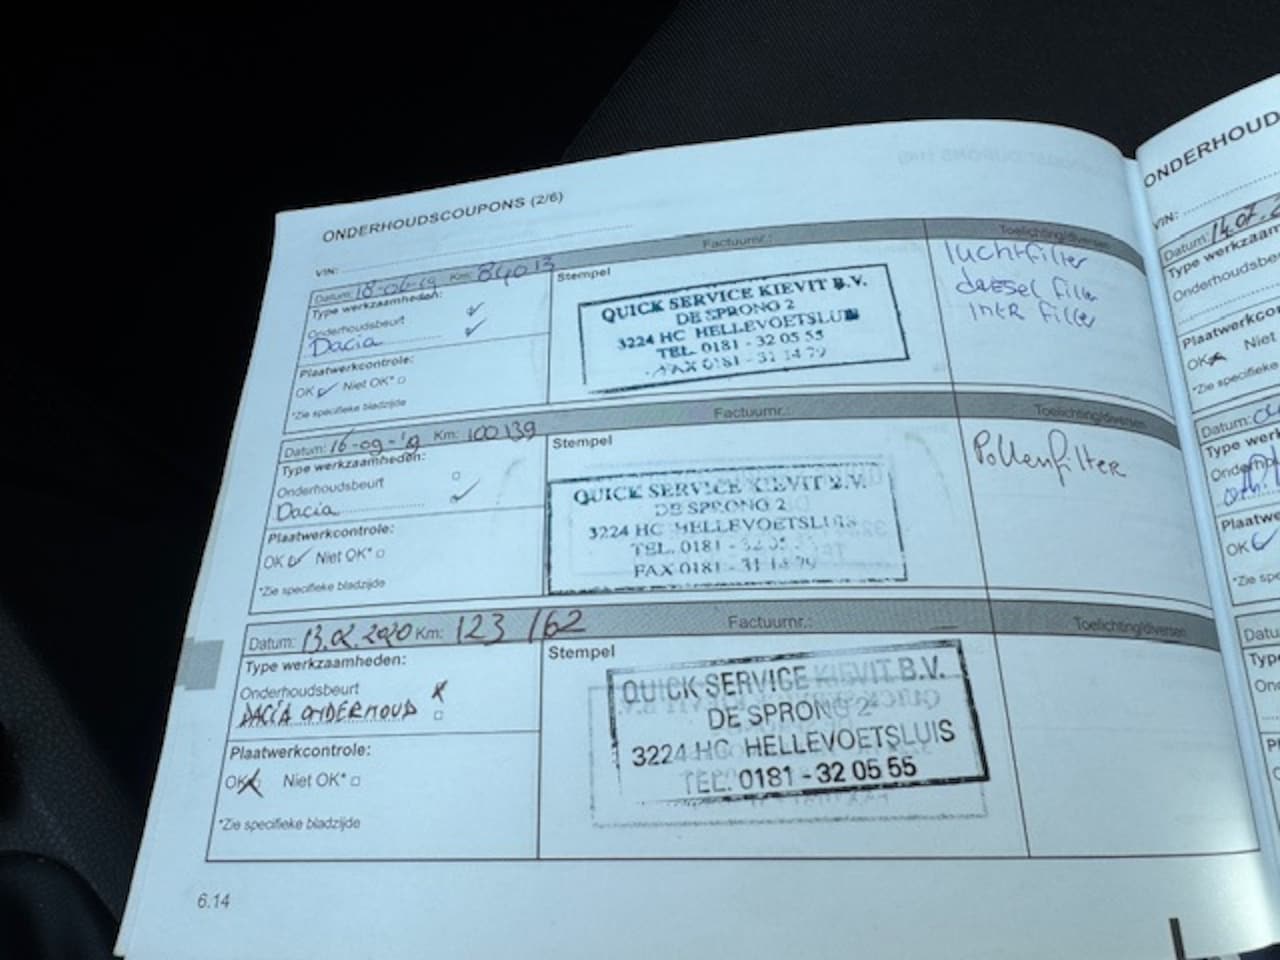 ONDERHOUDSCOUPONS (2/6)
VIN:
Datum: 18-06-19 Km: 84013 Factuurnr.: Toelichting/diversen
Type werkzaamheden:
Onderhoudsbeurt
Dacia
Plaatwerkcontrole:
OK Niet OK*
*Zie specifieke bladzijde
Stempel
QUICK SERVICE KIEVIT B.V.
DE SPRONG 2
3224 HC HELLEVOETSLUIS
TEL. 0181 - 32 05 55
FAX 0181 - 31 14 79
luchtfilter
filter
filter
Datum: 16-09-'19 Km: 100139 Factuurnr.: Toelichting/diversen
Type werkzaamheden:
Onderhoudsbeurt
Dacia
Plaatwerkcontrole:
OK Niet OK*
*Zie specifieke bladzijde
Stempel
QUICK SERVICE KIEVIT B.V.
DE SPRONG 2
3224 HC HELLEVOETSLUIS
TEL. 0181 - 32 05
FAX 0181 - 31 14 79
Pollenfilter
Datum: 13.02.2020 Km: 123 162 Factuurnr.: Toelichting/diversen
Type werkzaamheden:
Onderhoudsbeurt
DACIA ONDERHOUD
Plaatwerkcontrole:
OK Niet OK*
*Zie specifieke bladzijde
Stempel
QUICK SERVICE KIEVIT B.V.
DE SPRONG 2
3224 HC HELLEVOETSLUIS
TEL. 0181 - 32 05 55
6.14
ONDERHOUD
VIN:
Datum: 14.07.2
Type werkzaam
Onderhoudsbe
Plaatwerkco
OK Niet
*Zie specifieke
Datum:
Type werk
Onderho
Plaatwe
OK
*Zie spe
Datu
Type
Ond